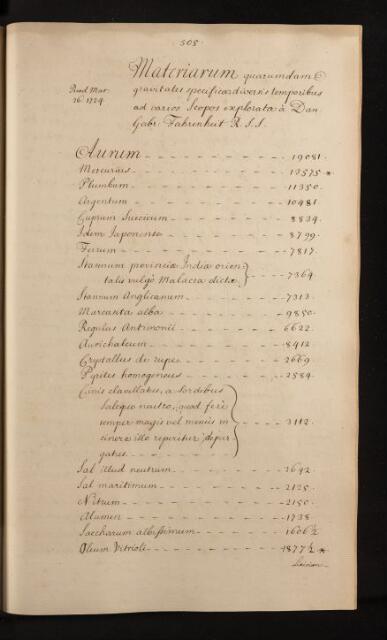 508.
Materiarum quarundam
Read Mar. gravitates specificæ diversis temporibus
26. 1724 ad varios Scopos explorata à Dan.
Gabr. Fahrenheit R. S. S.
Aurum - - - 19081.
Mercurius - - - 13575 *
Plumbum - - - 11350.
Argentum - - - 10481
Cuprum Suecicum - - - 8834.
Idem Japonense - - - 8799.
Ferrum - - - 7817.
Stannum provinciæ Indiæ orien
talis vulgò Malacca dictæ } - - - 7364.
Stannum Anglicanum - - - 7313.
Marcasita alba - - - 9850.
Regulus Antimonii - - - 6622.
Aurichalcum - - - 8412
Crystallus de rupe - - - 2669.
Pyrites homogeneus - - - 2584.
Cinis clavellatus, a Sordibus
Saleque neutro, quod ferè
semper magis vel minus in
cinere illo reperitur depur
gatus. } - - - 3112.
Sal illud neutrum - - - 2642.
Sal maritimum - - - 2125.
Nitrum - - - 2150.
Alumen - - - 1738.
Saccharum albissimum - - - 1606½
Oleum Vitrioli - - - 1877½ *